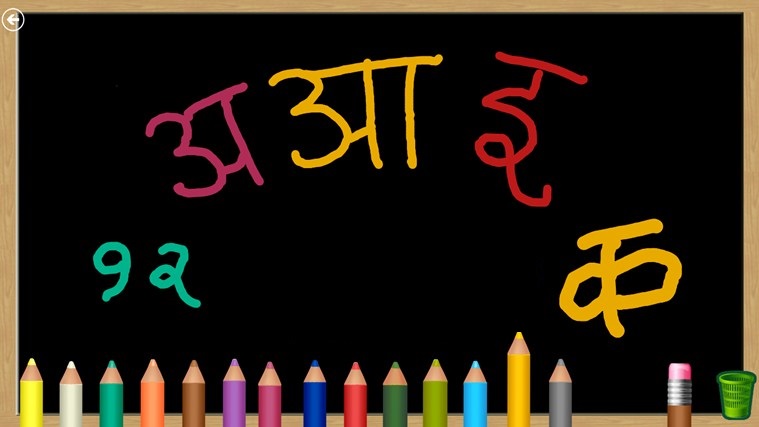 अ आ इ
१२ क